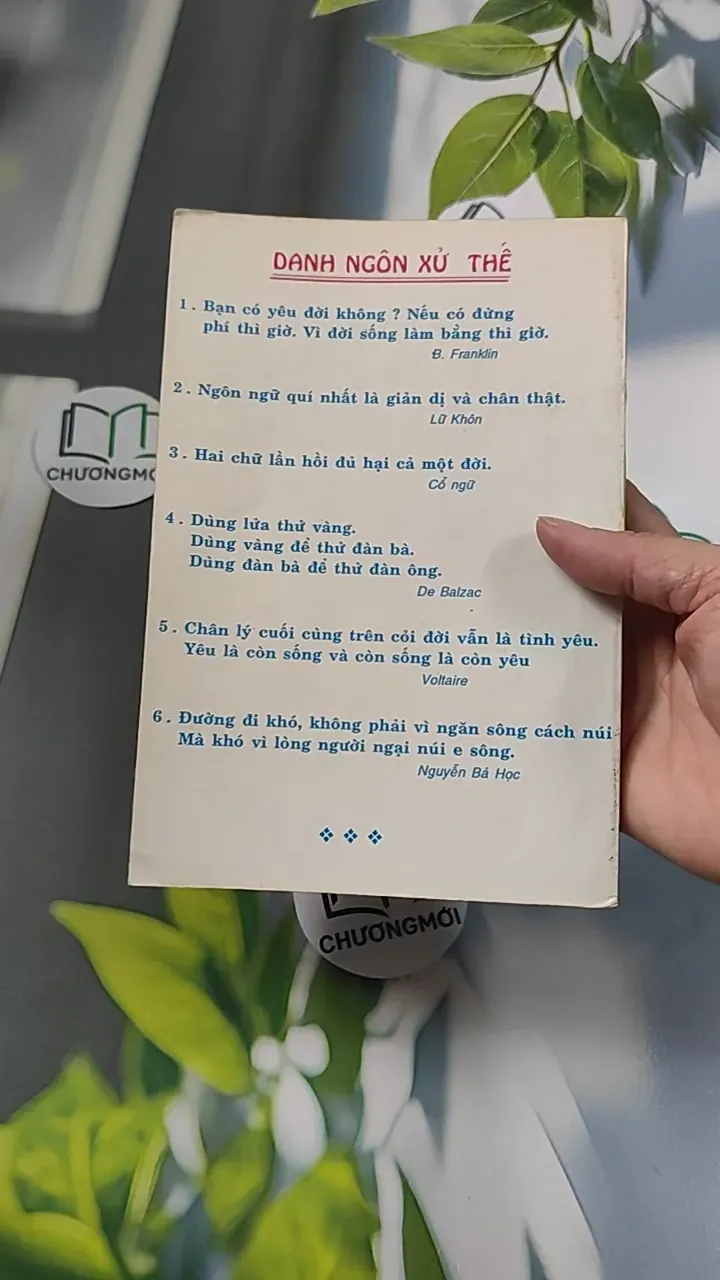 DANH NGÔN XỬ THẾ
1. Bạn có yêu đời không ? Nếu có đừng
phí thì giờ. Vì đời sống làm bằng thì giờ.
B. Franklin
2. Ngôn ngữ quí nhất là giản dị và chân thật.
Lữ Khôn
3. Hai chữ lần hồi đủ hại cả một đời.
Cổ ngữ
4. Dùng lửa thử vàng.
Dùng vàng để thử đàn bà.
Dùng đàn bà để thử đàn ông.
De Balzac
5. Chân lý cuối cùng trên cỏi đời vẫn là tình yêu.
Yêu là còn sống và còn sống là còn yêu
Voltaire
6. Đường đi khó, không phải vì ngăn sông cách núi
Mà khó vì lòng người ngại núi e sông.
Nguyễn Bá Học
CHƯƠNGMỚ
CHƯƠNGMỚI